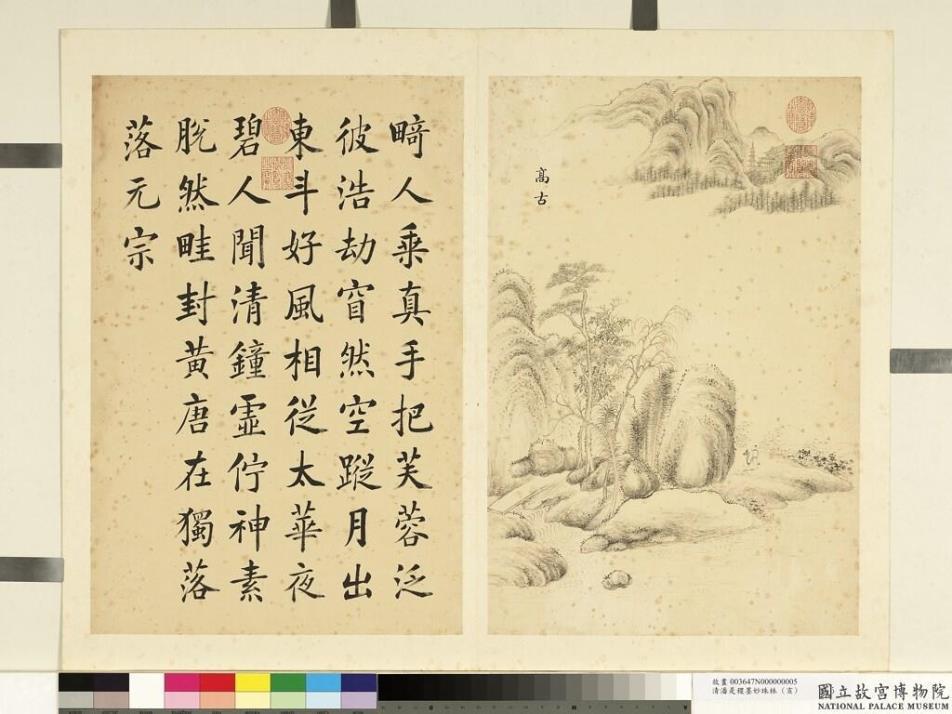 高古
畸人乘真手把芙蓉泛
彼浩劫窅然空蹤月出
東斗好風相從太華夜
碧人聞清鐘虛佇神素
脫然畦封黃唐在獨落
落元宗
故畫 003647N000000005
清潘是稷墨妙珠林
國立故宮博物院
NATIONAL PALACE MUSEUM